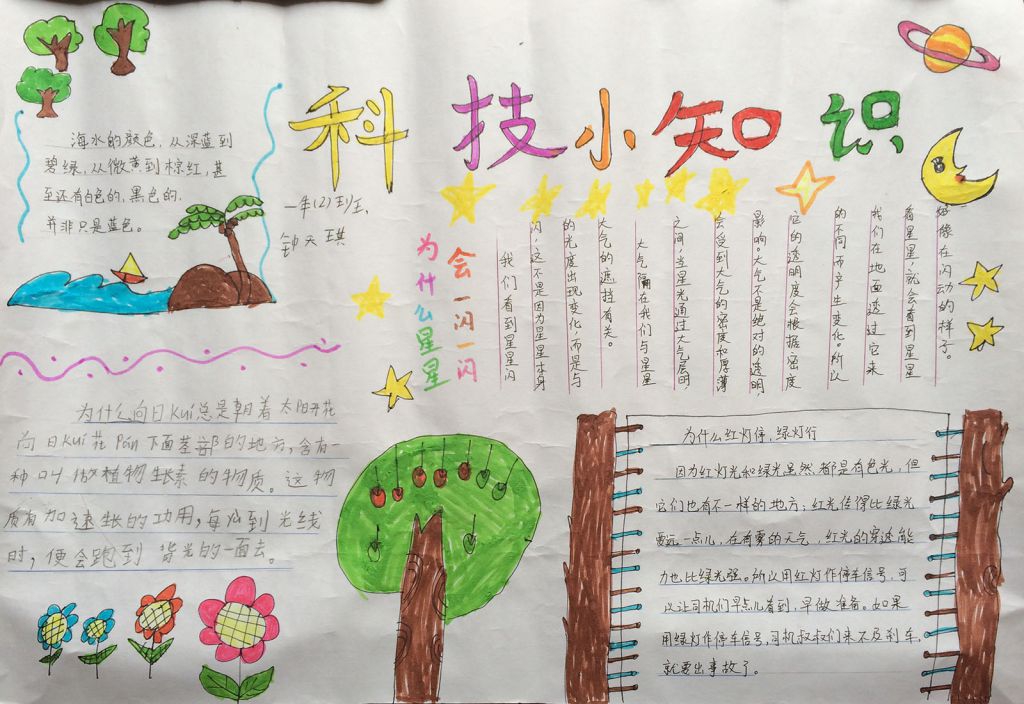 科技小知识
一年(2)班
钟天琪
海水的颜色,从深蓝到
碧绿,从微黄到棕红,甚
至还有白色的,黑色的,
并非只是蓝色。
为什么星星
会一闪一闪
我们看到星星闪
闪,这不是因为星星本身
的光度出现变化,而是与
大气的遮挡有关。
大气隔在我们与星星
之间,当星光通过大气层时
会受到大气的密度和厚薄
影响。大气不是绝对的透明,
它的透明度会根据密度
的不同而产生变化。所以
我们在地面透过它来
看星星,就会看到星星
好像在闪动的样子。
为什么向日Kuí总是朝着太阳开花
向日Kuí花Pán下面茎部的地方,含有一
种叫做植物生长素的物质。这物
质有加速生长的功用,每次到光线
时,便会跑到背光的一面去。
为什么红灯停,绿灯行
因为红灯光和绿光虽然都是有色光,但
它们也有不一样的地方:红光传得比绿光
要远一点儿,在有雾的天气,红光的穿透能
力也比绿光强。所以用红灯作停车信号,可
以让司机们早点儿看到,早做准备。如果
用绿灯作停车信号,司机叔叔们来不及刹车,
就要出事故了。